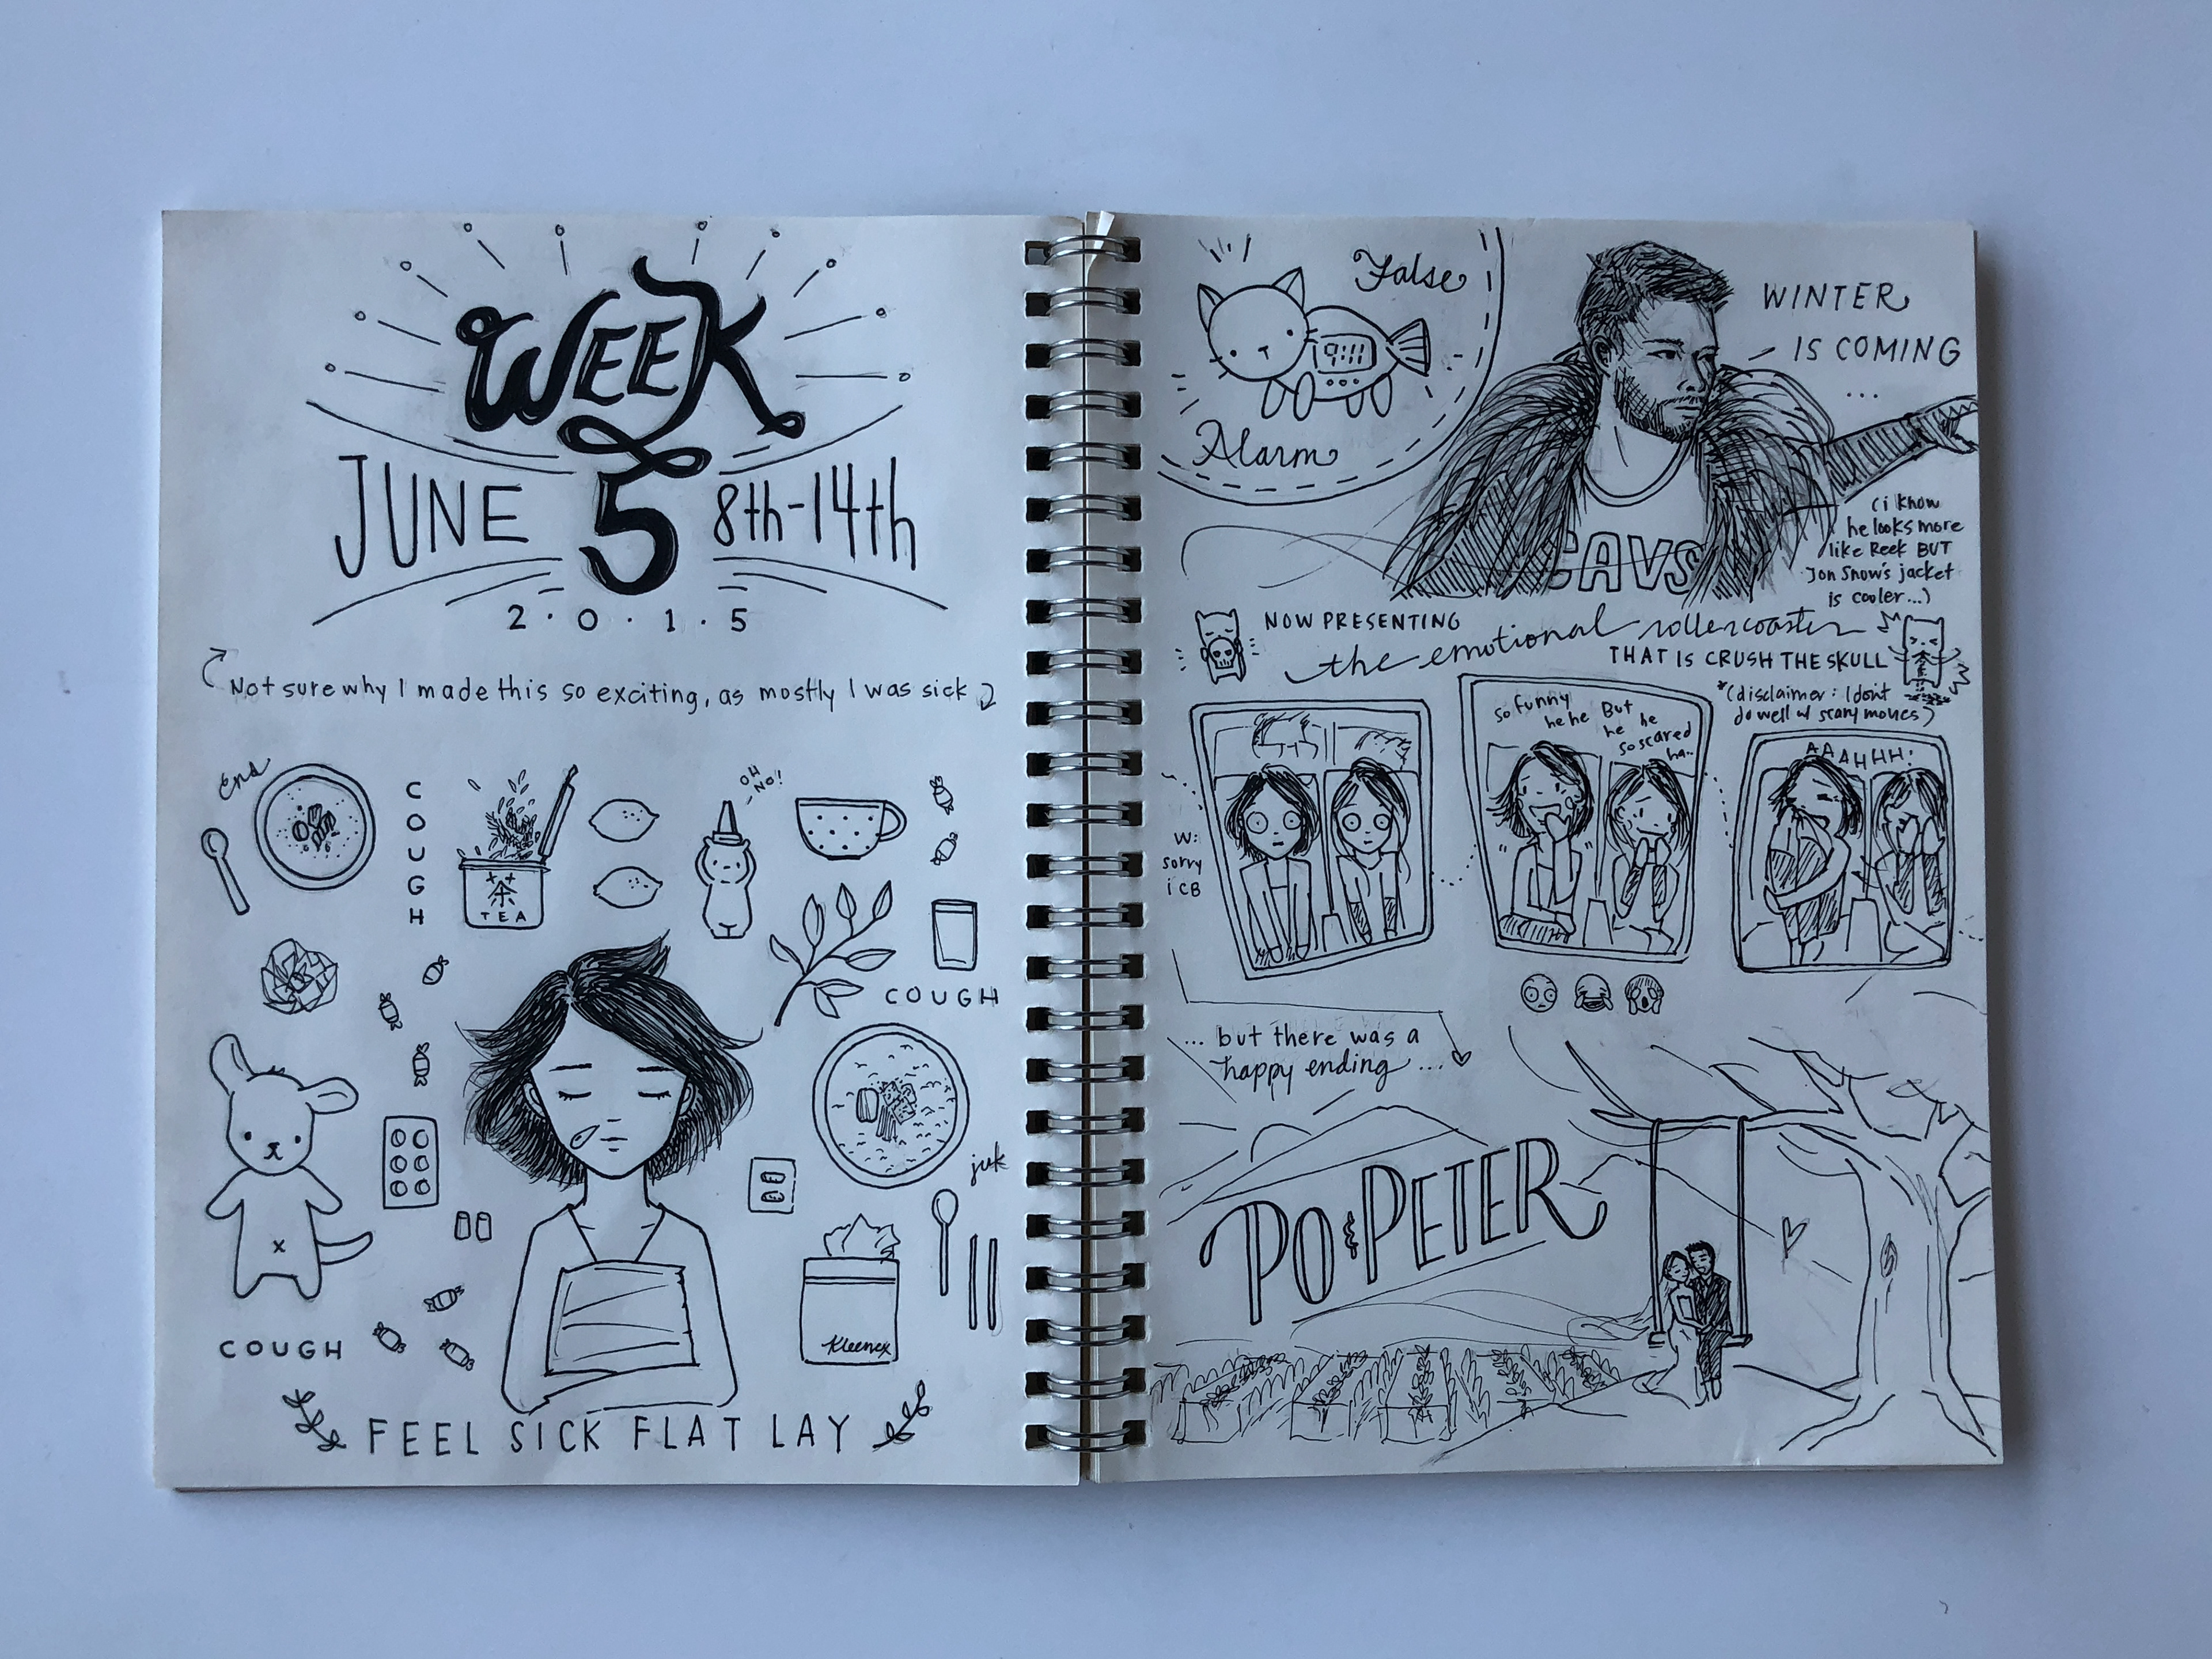 WEEK
5
JUNE 8th-14th
2·0·1·5
Not sure why I made this so exciting, as mostly I was sick
COUGH
茶
TEA
OH
NO!
COUGH
juk
Kleenex
COUGH
FEEL SICK FLAT LAY
False
9:11
Alarm
WINTER
IS COMING
...
CAVS
(i know
he looks more
like Reek BUT
Jon Snow's jacket
is cooler...)
NOW PRESENTING
the emotional rollercoaster
THAT IS CRUSH THE SKULL
*(disclaimer: I don't
do well w/ scary movies)
W:
sorry
i CB
so funny
he he
But
he he
so scared
ha..
AAAHHH!
... but there was a
happy ending ...
PO & PETER